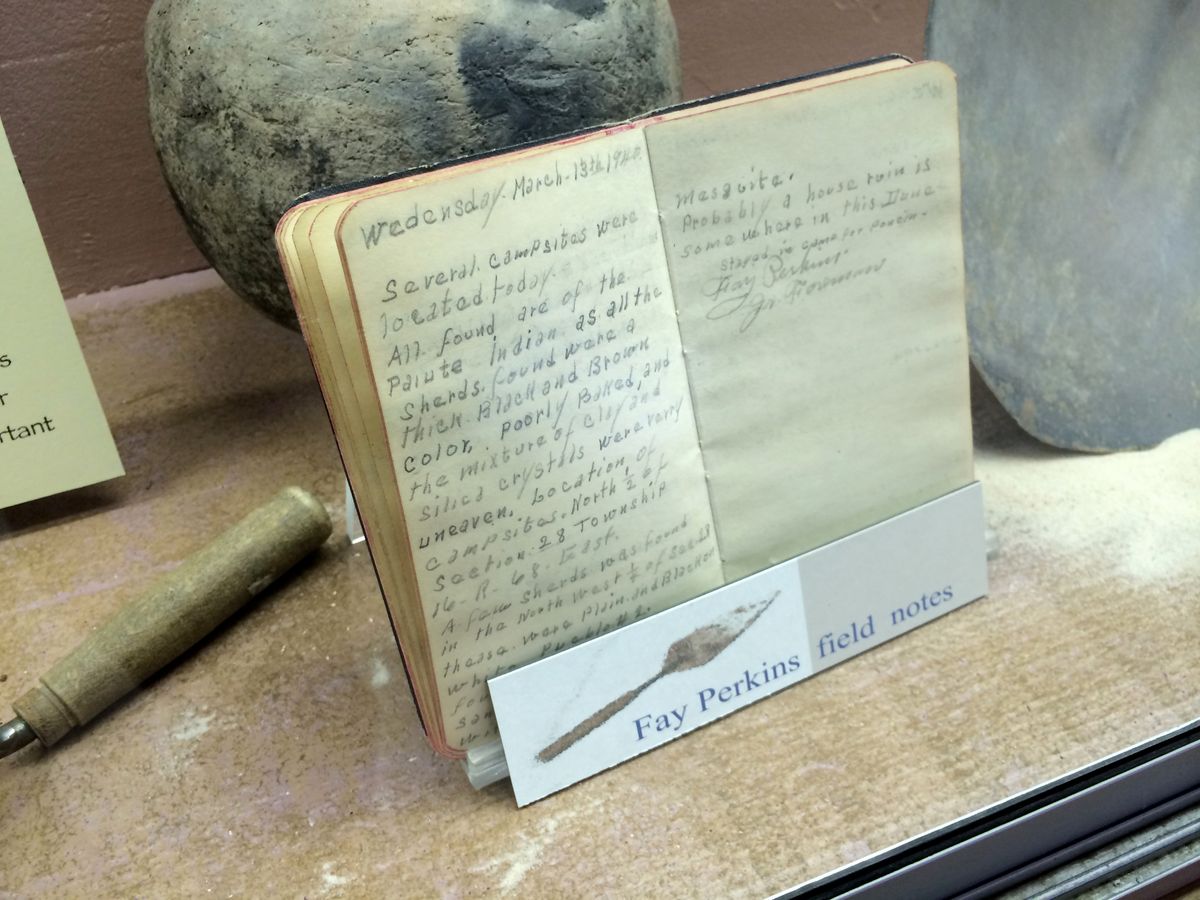 s
r
rtant
Wedensday. March. 13th 1940.
Several campsites were
located today.
All found are of the
Paiute Indian as all the
Sherds found were a
thick Black and Brown
color, poorly Baked, and
the mixture of clay and
silica crystals were very
uneaven. Location of
campsites. North 1/2 of
Section. 28 Township
16 - R. 68. East.
A few sherds was found
in the North West 1/4 of Sec
thease were Plain and Black on
Pueblo # 2.
mesquite.
Probably a house ruin is
some where in this Dune
stayed in camp for
Fay Perkins
Jr. Foreman
Fay Perkins field notes